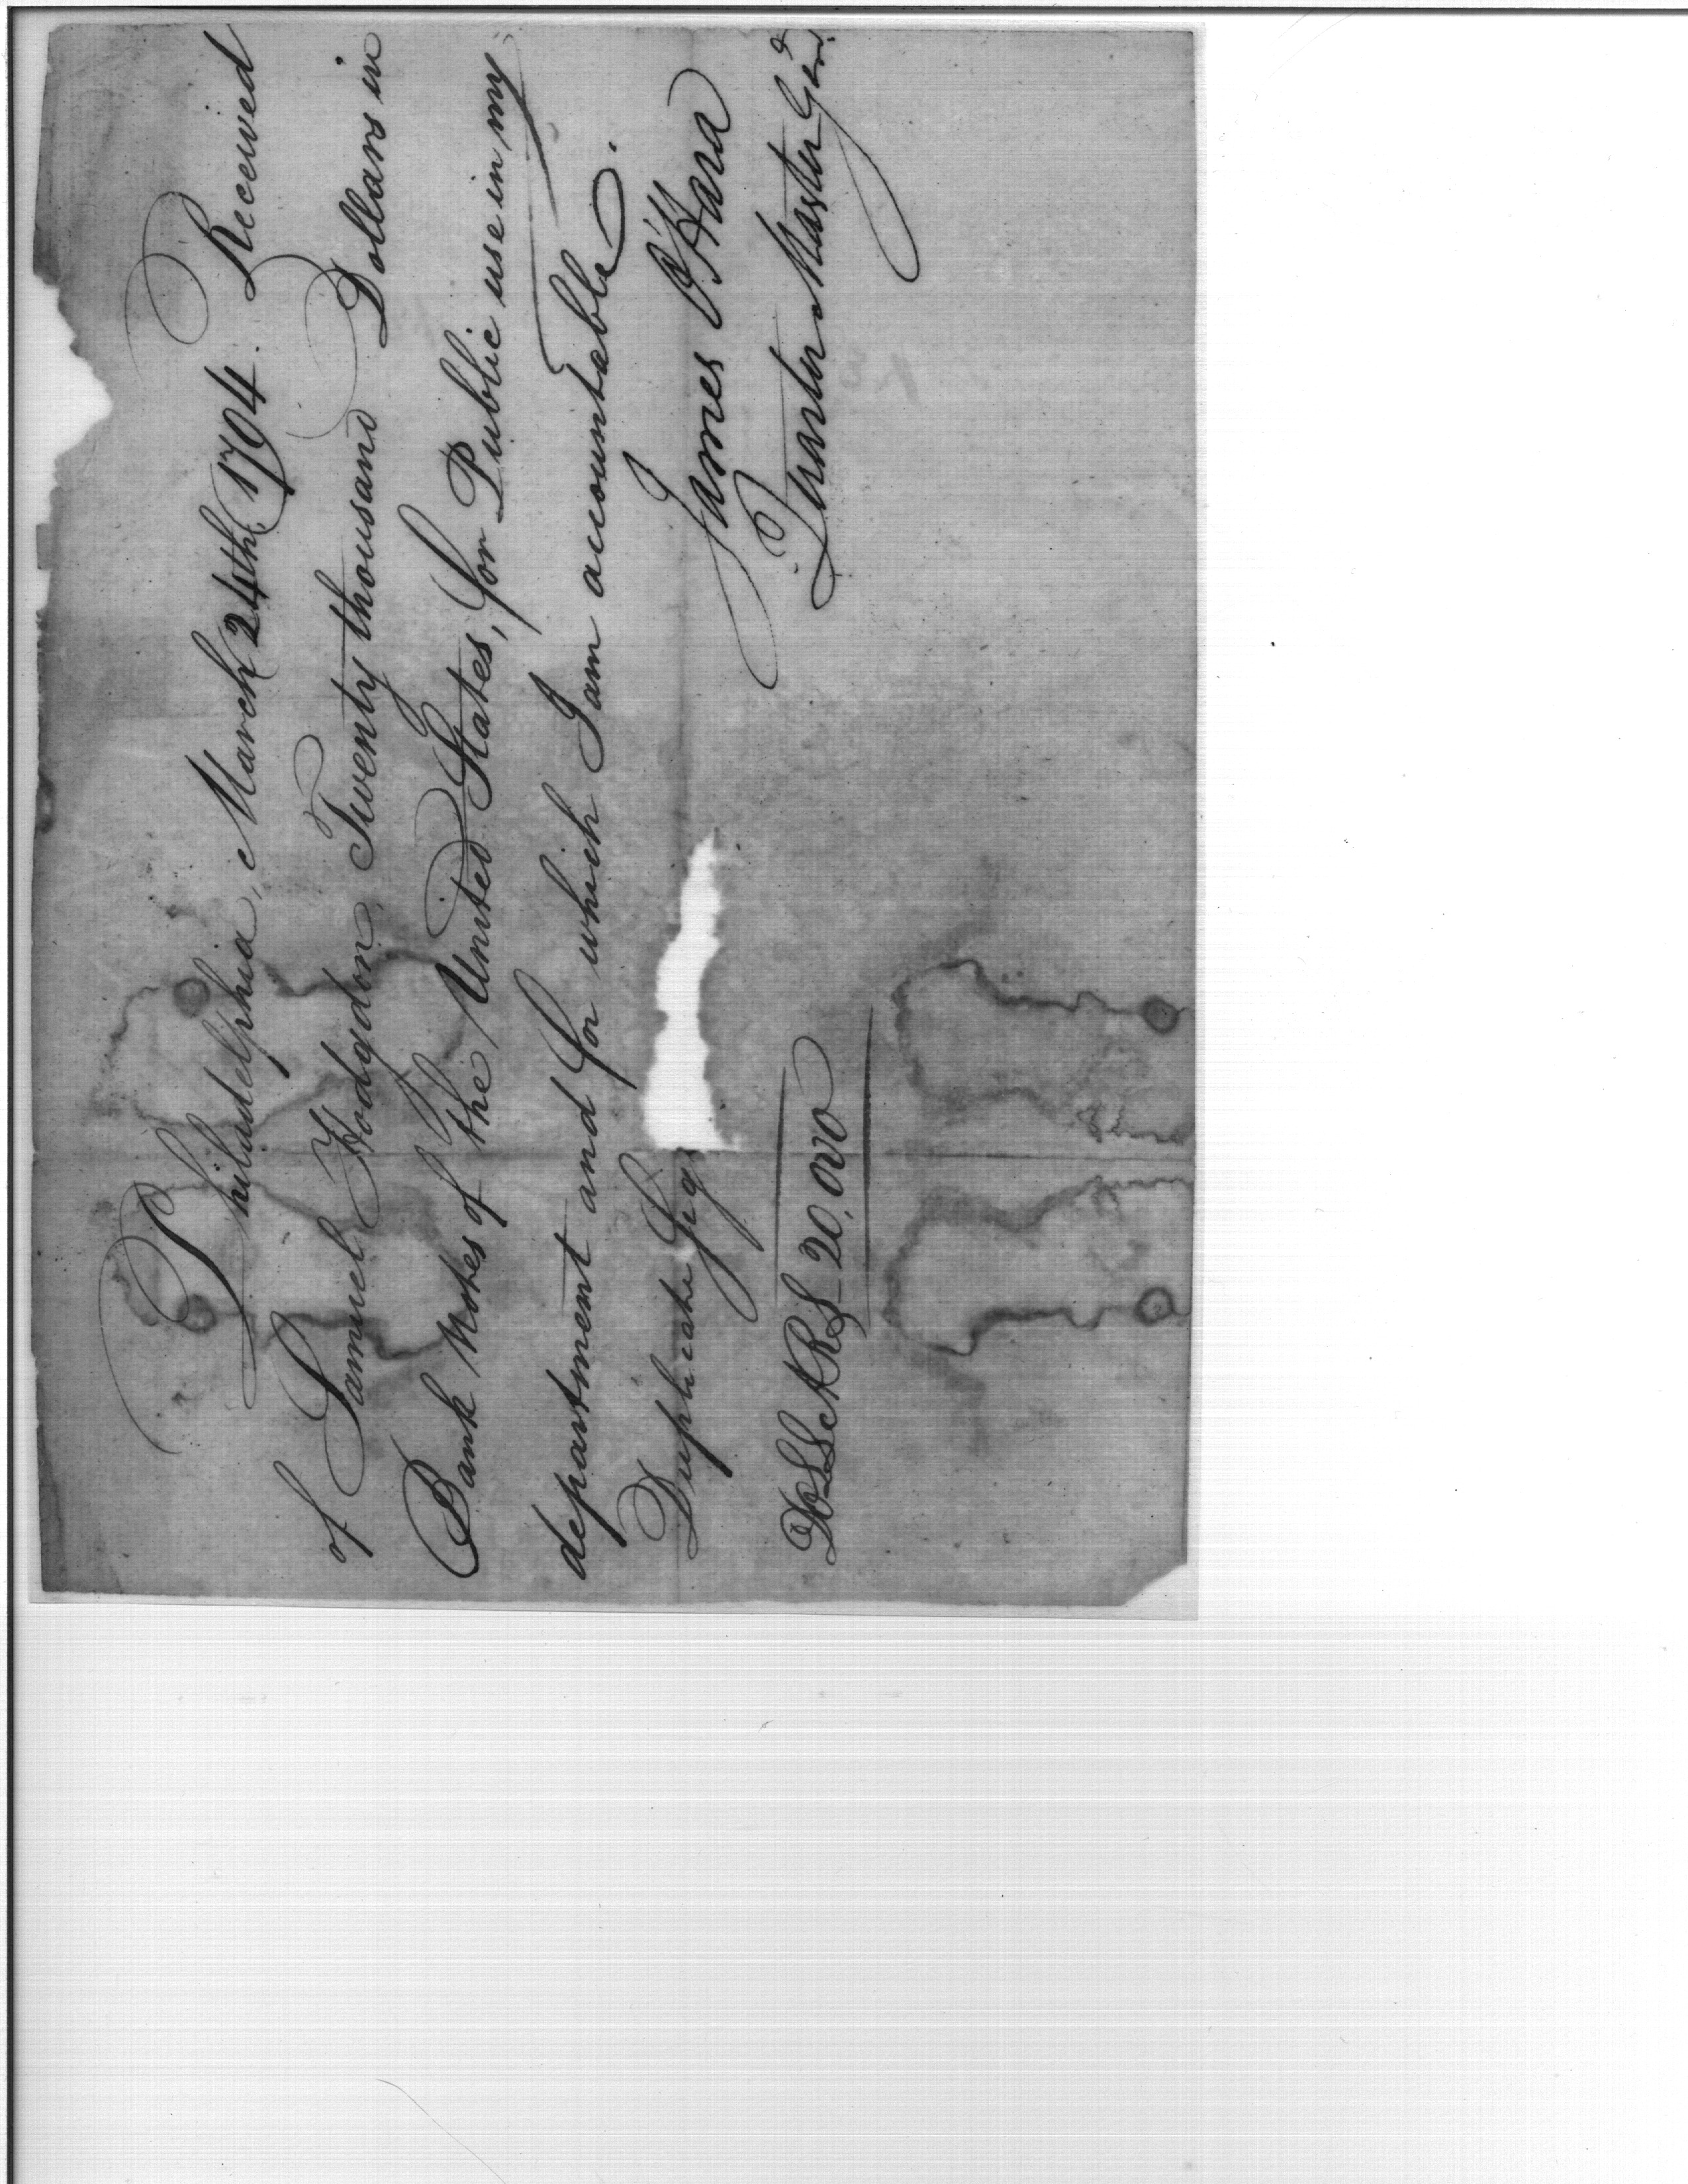 Philadelphia, March 24th 1794. Received
of Samuel Hodgdon, Twenty thousand Dollars in
Bank Notes of the United States, for Public use in my
department and for which I am accountable.
Duplicate
James O'Hara
DOLLARS 20,000
Quarter Master Genl.